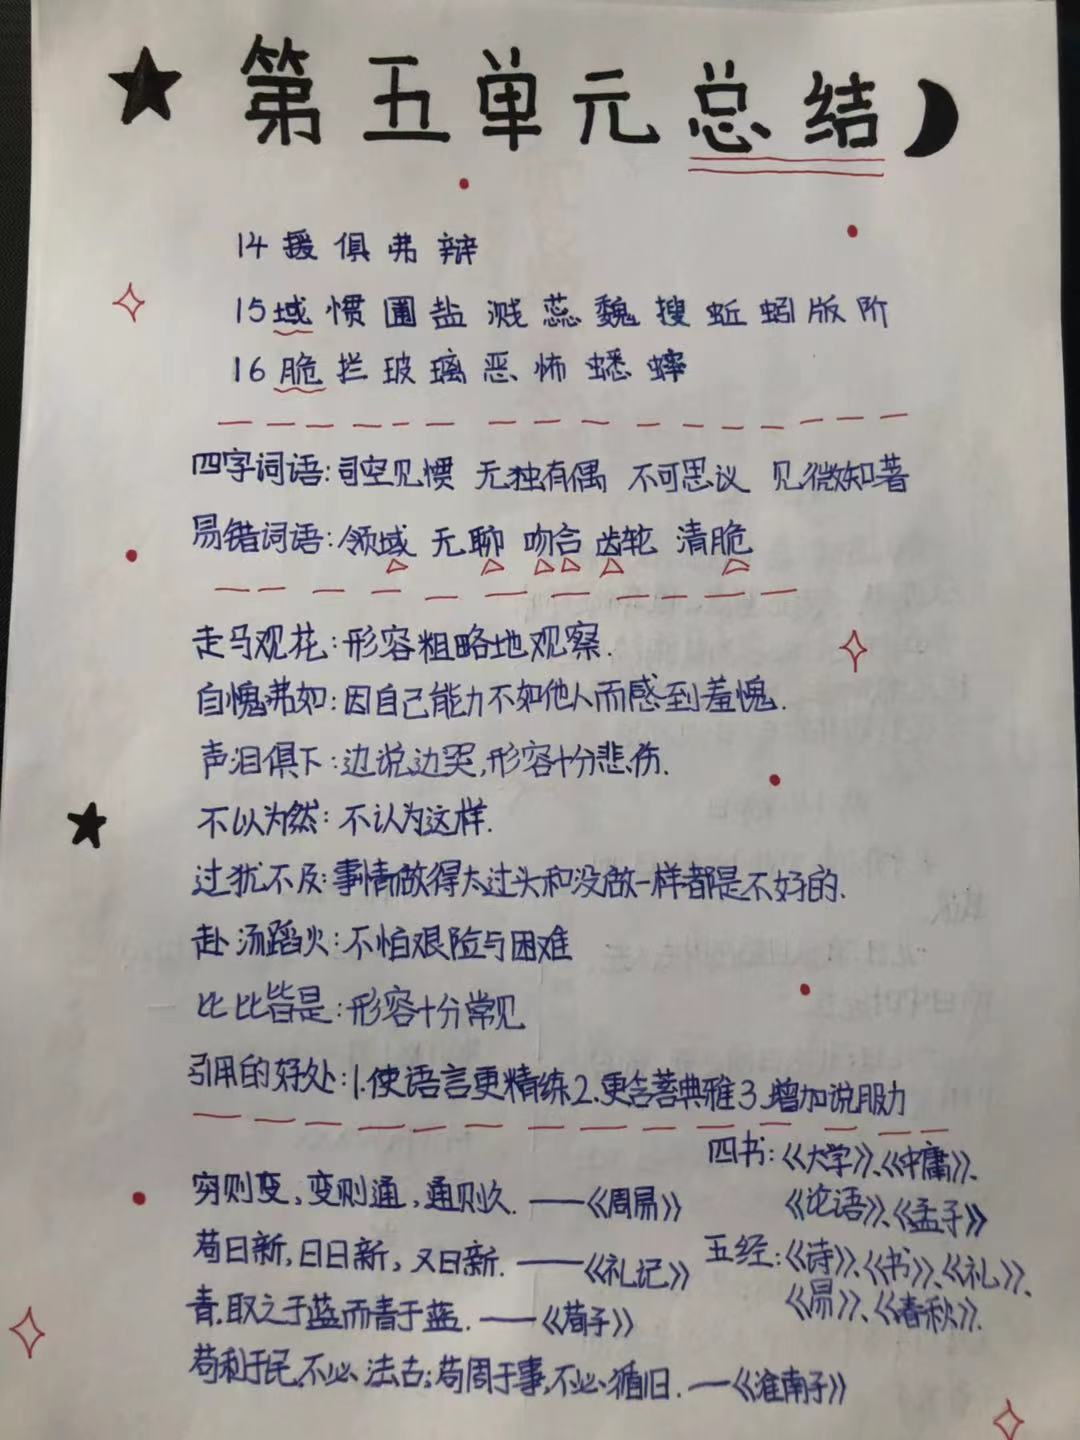 第五单元总结
14 援 俱 弗 辩
15 域 惯 圃 盐 溅 蕊 魏 搜 蚯 蚓 版 阶
16 脆 拦 玻 璃 恶 怖 蟋 蟀
四字词语:司空见惯 无独有偶 不可思议 见微知著
易错词语:领域 无聊 吻合 齿轮 清脆
走马观花:形容粗略地观察.
自愧弗如:因自己能力不如他人而感到羞愧.
声泪俱下:边说边哭,形容十分悲伤.
不以为然:不认为这样.
过犹不及:事情做得太过头和没做一样都是不好的.
赴汤蹈火:不怕艰险与困难
比比皆是:形容十分常见
引用的好处:1.使语言更精练2.更含蓄典雅3.增加说服力
穷则变,变则通,通则久.——《周易》
苟日新,日日新,又日新.——《礼记》
青,取之于蓝而青于蓝.——《荀子》
苟利于民,不必法古;苟周于事,不必循旧.—《淮南子》
四书:《大学》、《中庸》、
《论语》、《孟子》
五经:《诗》、《书》、《礼》、
《易》、《春秋》.